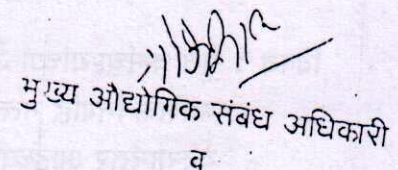 मुख्य औद्योगिक संबंध अधिकारी
व